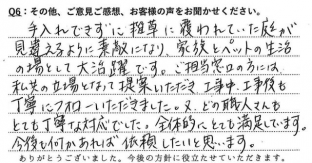 Q6：その他、ご意見ご感想、お客様の声をお聞かせください。
手入れできずに雑草に覆われていた庭が
見違えるように素敵になり、家族とペットの生活
の場として大活躍です。ご担当窓口の方には、
私共の立場となって提案いただき工事中、工事後も
丁寧にフォローいただきました。又、どの職人さんも
とても丁寧な対応でした。全体的にとても満足しています。
今後も何かあれば依頼したいと思います。
ありがとうございました。今後の方針に役立たせていただきます。